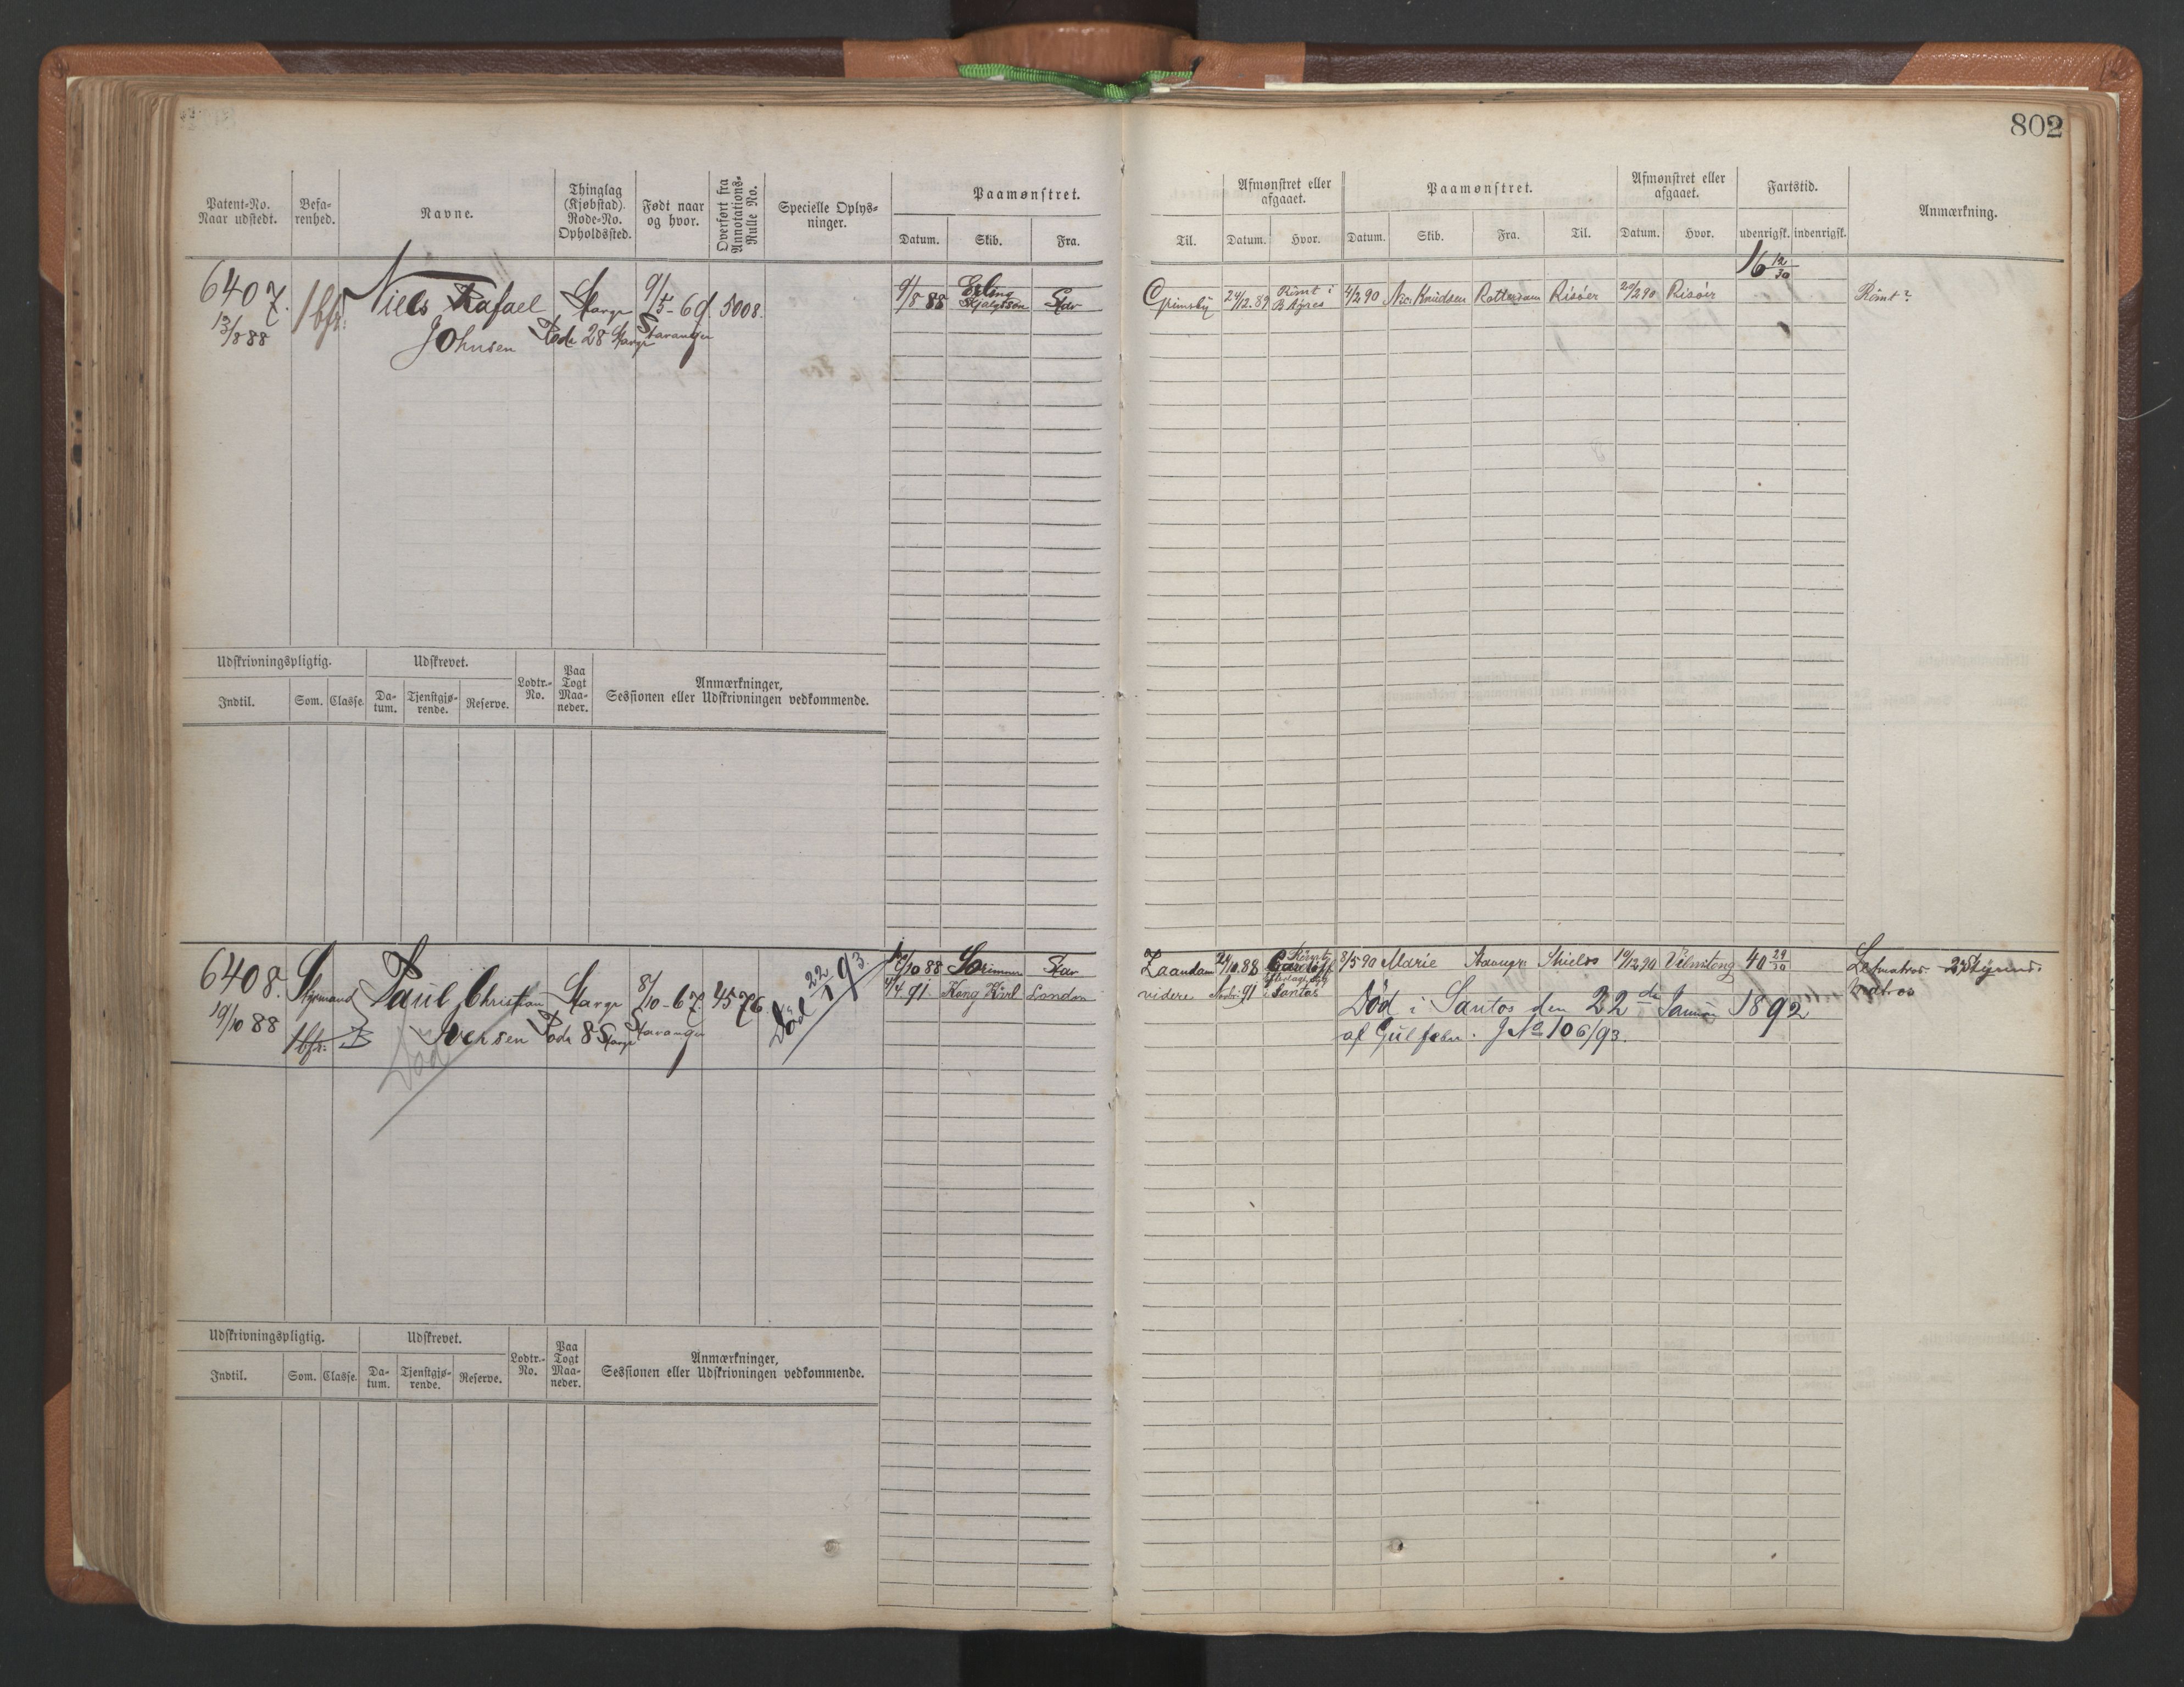 802
Patent-No. Naar udstedt.
Befarenhed.
Navne.
Thinglag (Kjøbstad). Rode-No. Opholdssted.
Født naar og hvor.
Overført fra Annotations-Rulle No.
Specielle Oplysninger.
Paamønstret.
Datum. Skib. Fra.
Til.
Afmønstret eller afgaaet.
Datum. Hvor.
Paamønstret.
Datum. Skib. Fra. Til.
Afmønstret eller afgaaet.
Datum. Hvor.
Fartstid.
udenrigsk. indenrigsk.
Anmærkning.
6407. 1bfr. Niels Rafael 9/5-69. 5008. 9/8 88 Erling Skjalgsson Stav
13/8 88 Johnsen Rode 28 Stavanger
24/12.89 Römt i B Ayres 4/2 90 Knudsen Rotterdam Risöer 20/2 90 Risöer 16 12/30 Römt?
Udskrivningspligtig. Udskrevet. Lodtr.-No. Paa Togt Maaneder. Anmærkninger, Sessionen eller Udskrivningen vedkommende.
Indtil. Som. Classe. Datum. Tjenstgjørende. Reserve.
6408. Styrmand Paul Christian 8/10-67. 4576. Död 22/1 93. /10 88 Stav
19/10 88 1bfr. Iversen Rode 8 Stavanger 4/4 91. Kong Carl London
Död
Zaandam /10.88 8/5 90 Marie Shields 19/12 90 40 29/30 Letmatros.
videre 91 i Santos Död i Santos den 22de Januar 1892 Matros
af Gul feber. J No 106/93.
Udskrivningspligtig. Udskrevet. Lodtr.-No. Paa Togt Maaneder. Anmærkninger, Sessionen eller Udskrivningen vedkommende.
Indtil. Som. Classe. Datum. Tjenstgjørende. Reserve.